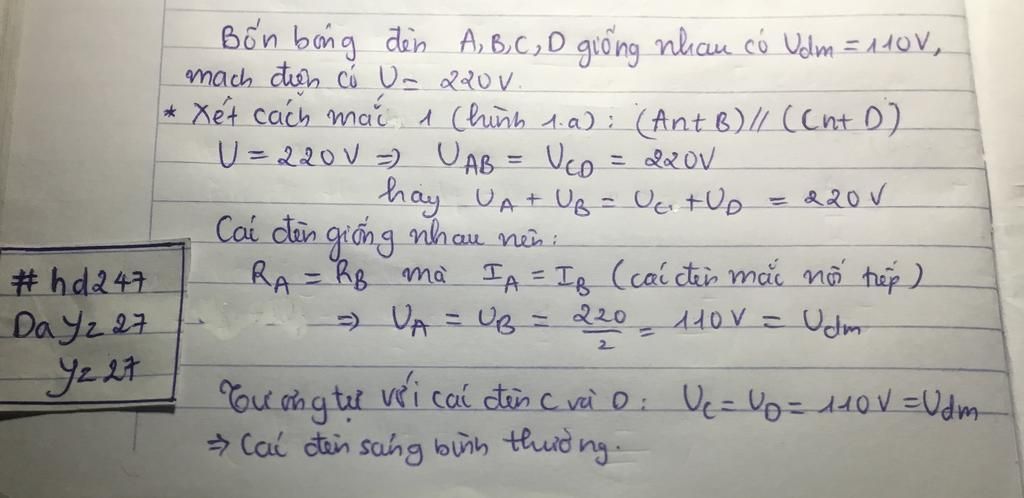 Bốn bóng đèn A, B, C, D giống nhau có Uđm = 110V,
mạch điện có U = 220V.
* Xét cách mắc 1 (hình 1.a) : (A nt B) // (C nt D)
U = 220V => UAB = UCD = 220V
hay UA + UB = UC + UD = 220V
Các đèn giống nhau nên:
RA = RB mà IA = IB (các đèn mắc nối tiếp)
=> UA = UB = 220/2 = 110V = Uđm
Tương tự với các đèn C và D: UC = UD = 110V = Uđm
=> Các đèn sáng bình thường.
#hd247
Dayz27
yz27